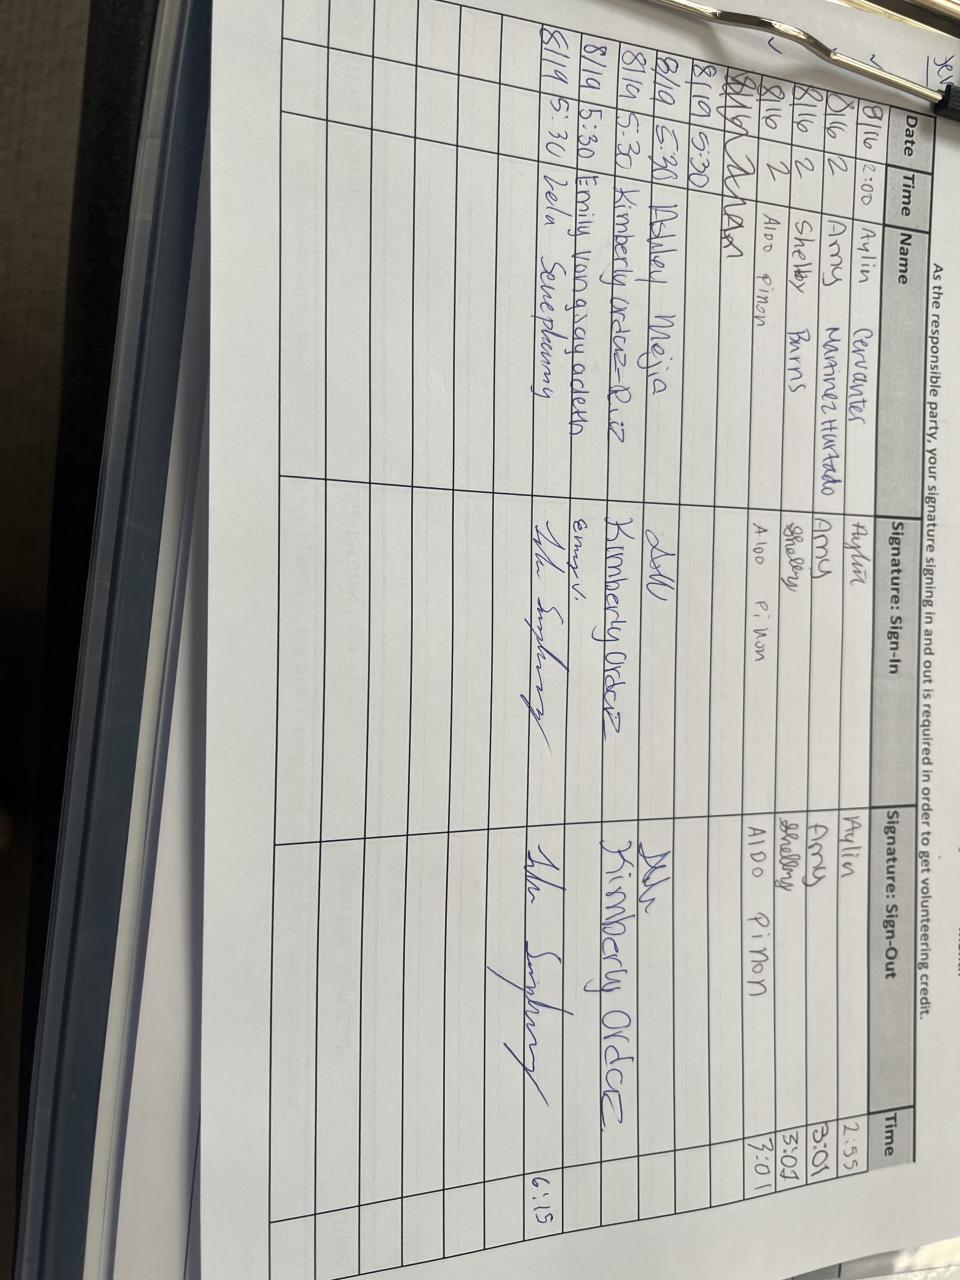 As the responsible party, your signature signing in and out is required in order to get volunteering credit.
Date Time Name Signature: Sign-In Signature: Sign-Out Time
8/16 2:00 Aylin Cervantes Aylin Aylin 2:55
8/16 2 Amy Martinez Hurtado Amy Amy 3:01
8/16 2 Shelby Burns Shelby Shelby 3:01
8/16 2 Aldo Pinon Aldo Pinon Aldo Pinon 3:01
8/19 5:30
8/19 5:30 Ashley Mejia
8/19 5:30 Kimberly Ordaz-Ruiz Kimberly Ordaz Kimberly Ordaz
8/19 5:30 Emily Vongsayadeth Emily V.
8/19 5:30 Lela 6:15